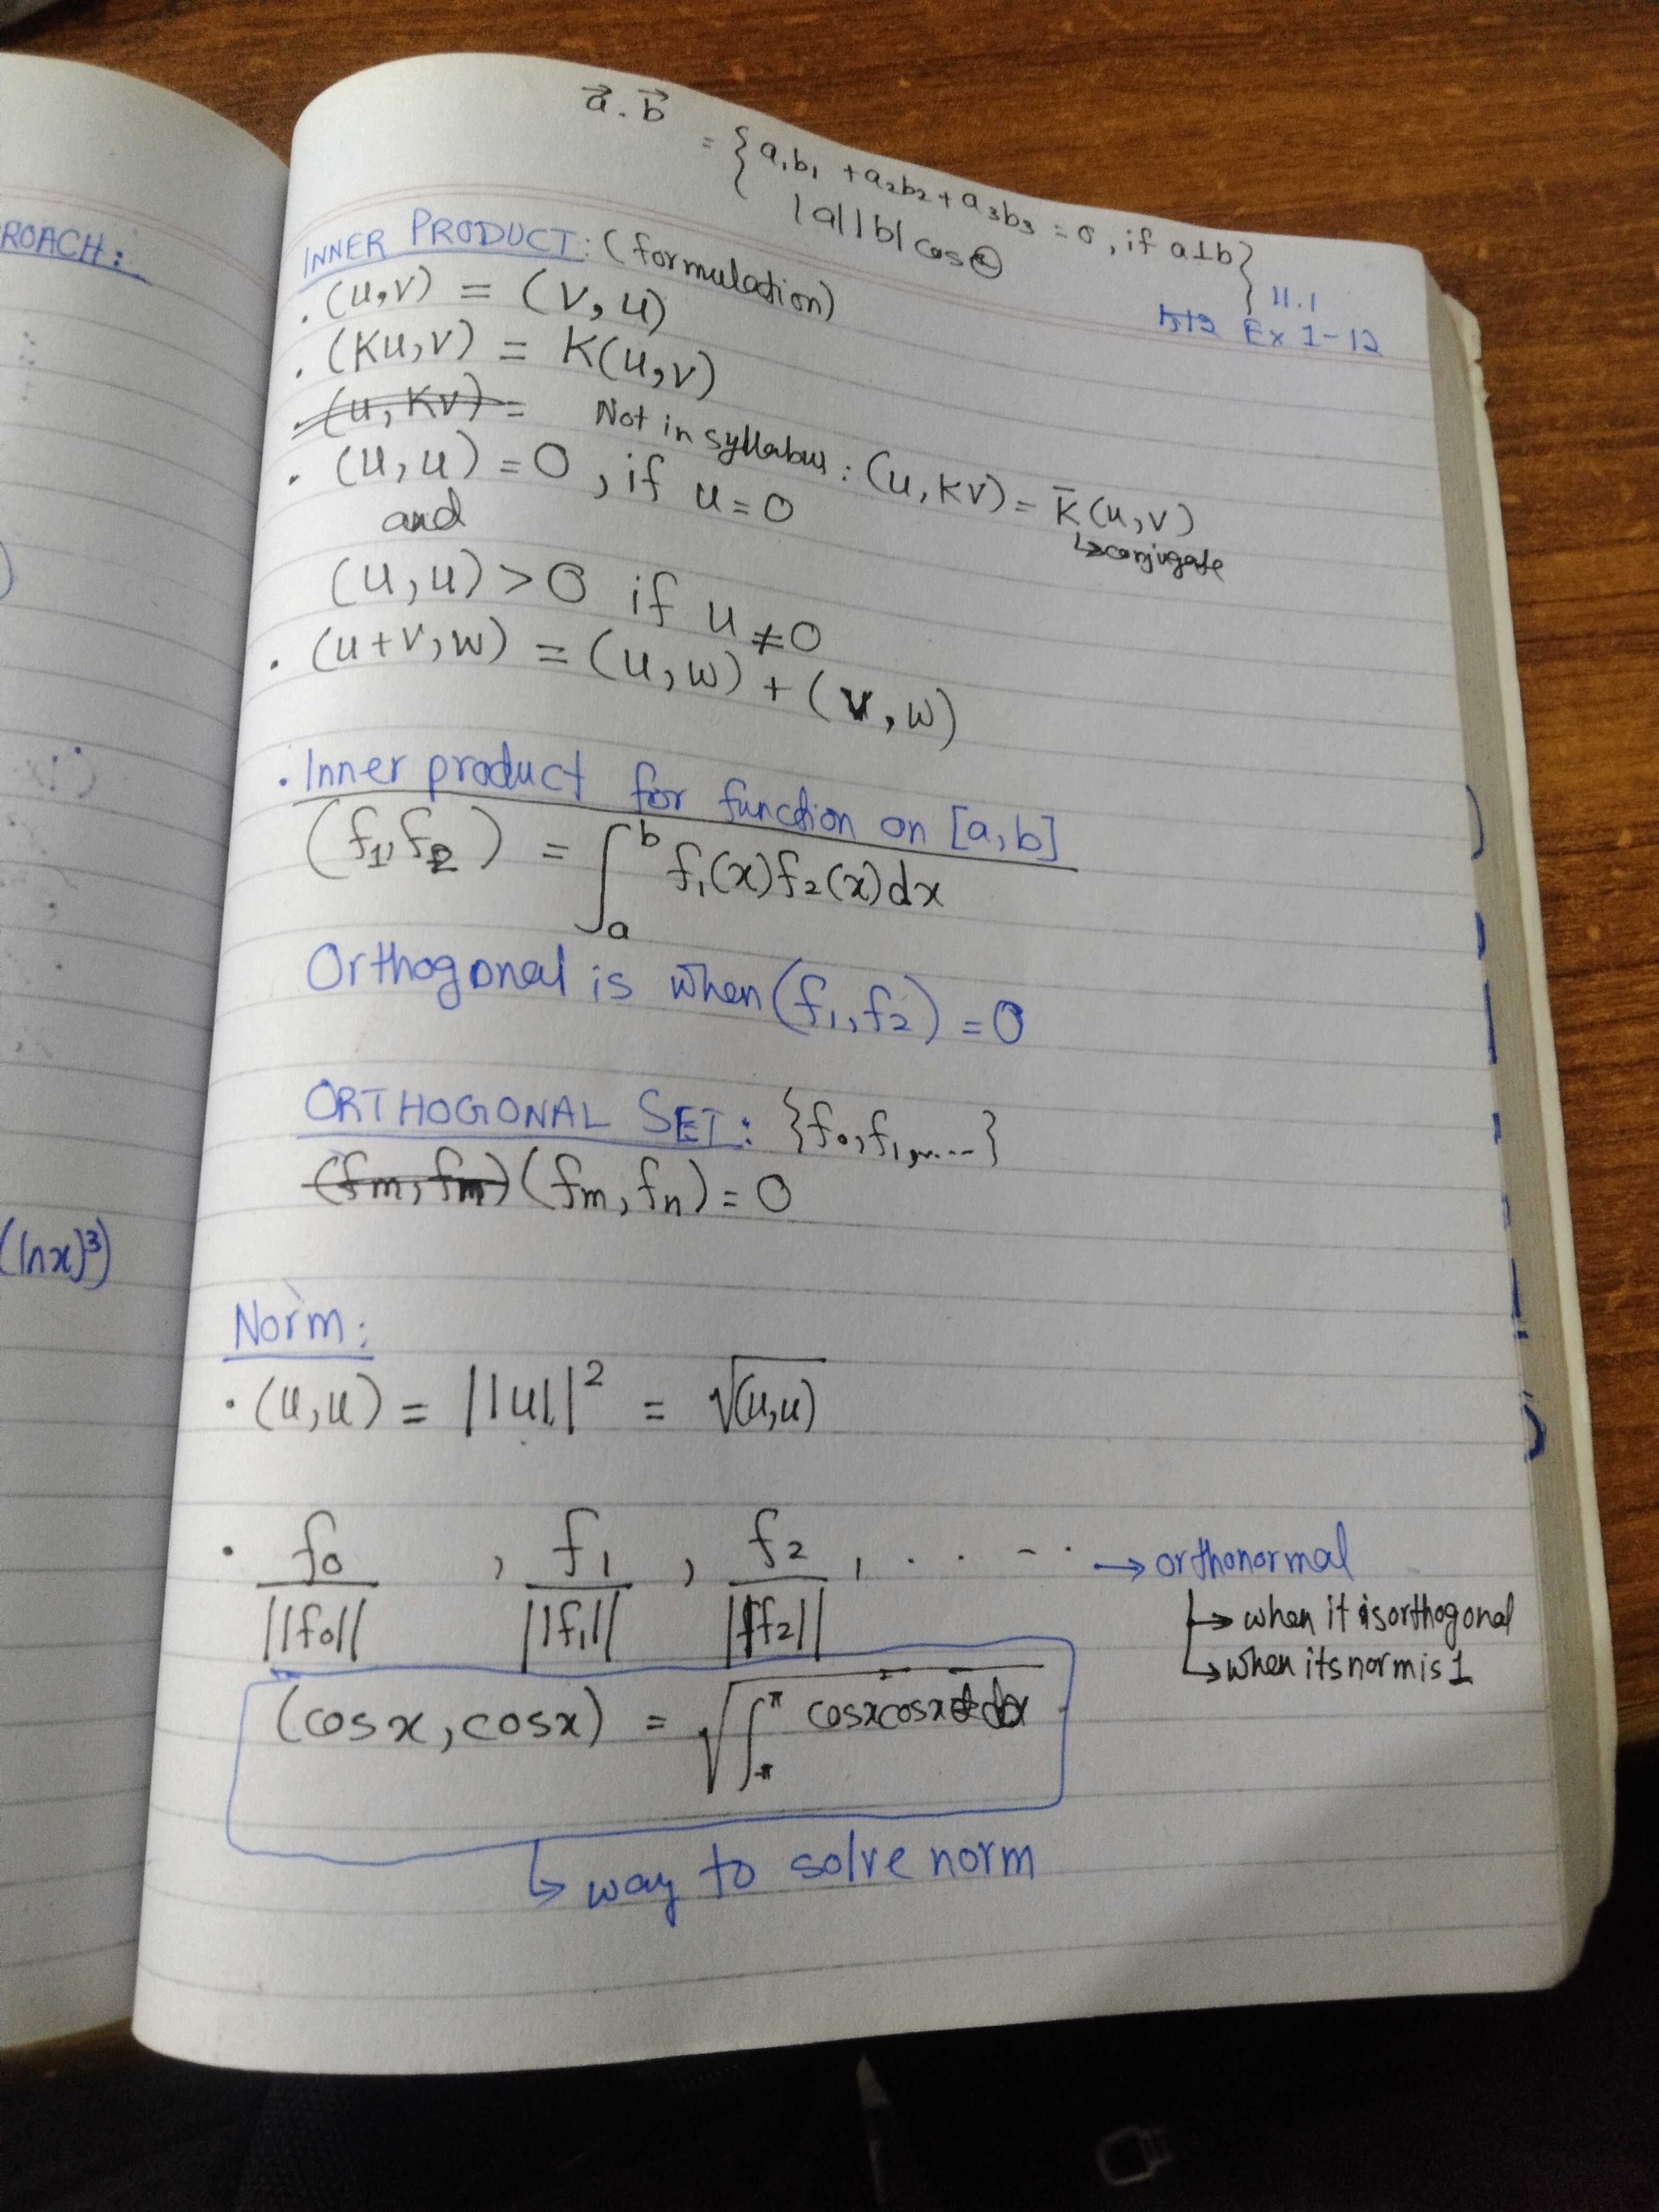 a⃗ . b⃗ = { a₁b₁ + a₂b₂ + a₃b₃ = 0, if a⊥b }
|a||b| cos θ
11.1
Ex 1-12
ROACH:
INNER PRODUCT: (formulation)
. (u,v) = (v,u)
. (Ku,v) = K(u,v)
. (u,Kv) = Not in syllabus: (u,Kv) = K̄(u,v)
↳ conjugate
. (u,u) = 0, if u = 0
and
(u,u) > 0 if u ≠ 0
. (u+v,w) = (u,w) + (v,w)
. Inner product for function on [a,b]
(f₁,f₂) = ∫ₐᵇ f₁(x)f₂(x)dx
Orthogonal is when (f₁,f₂) = 0
ORTHOGONAL SET: {f₀,f₁,....}
(fm,fm) (fm,fn) = 0
(lnx)³)
Norm:
. (u,u) = ||u||² = √(u,u)
. f₀/||f₀|| , f₁/||f₁|| , f₂/||f₂|| , . . - - . → orthonormal
↳ when it is orthogonal
↳ when its norm is 1
(cosx,cosx) = √∫₋π^π cosxcosx dx
↳ way to solve norm